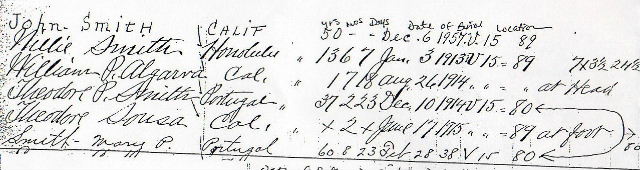 yrs mos Days Date of Burial Location
John Smith CALIF 50 - - Dec. 6 1957 V 15 89
Willie Smith Honolulu " 13 6 7 Jan 3 1913 V 15 = 89 7x3½ 24½
William P. Algarva Cal. " 1 7 18 Aug 26 1914 " " " at Head
Theodore P. Smith Portugal " 37 2 23 Dec. 10 1914 V 15 = 80
Theodore Sousa Cal. " x 2 x June 17 1915 " " = 89 at foot
Smith Mary P. Portugal 60 8 23 Feb 28 38 V 15 80